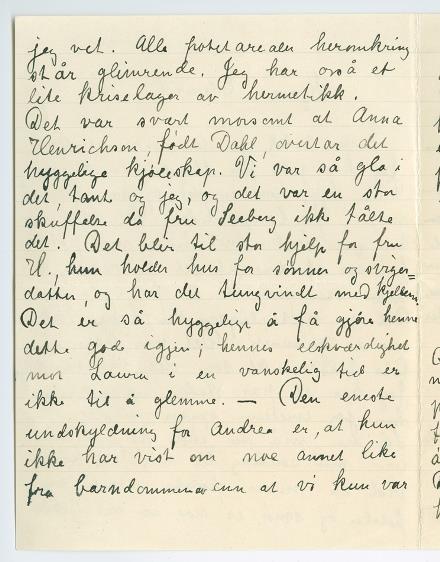 jeg vet. Alle potetarealer heromkring
står glimrende. Jeg har også et
lite kriselager av hermetikk.
Det var svært morsomt at Anna
Henrichson, født Dahl, overtar det
hyggelige kjøleskap. Vi var så gla i
det, tante og jeg, og det var en stor
skuffelse da fru Seeberg ikke tålte
det. Det blir til stor hjelp for fru
H., hun holder hus for sønner og sviger=
datter, og har det tungvindt med kjelleren
Det er så hyggelig å få gjøre henne
dette gode igjen; hennes elskværdighet
mot Laura i en vanskelig tid er
ikke til å glemme. — Den eneste
undskyldning for Andrea er, at hun
ikke har vist om noe annet like
fra barndommen av enn at vi kun var